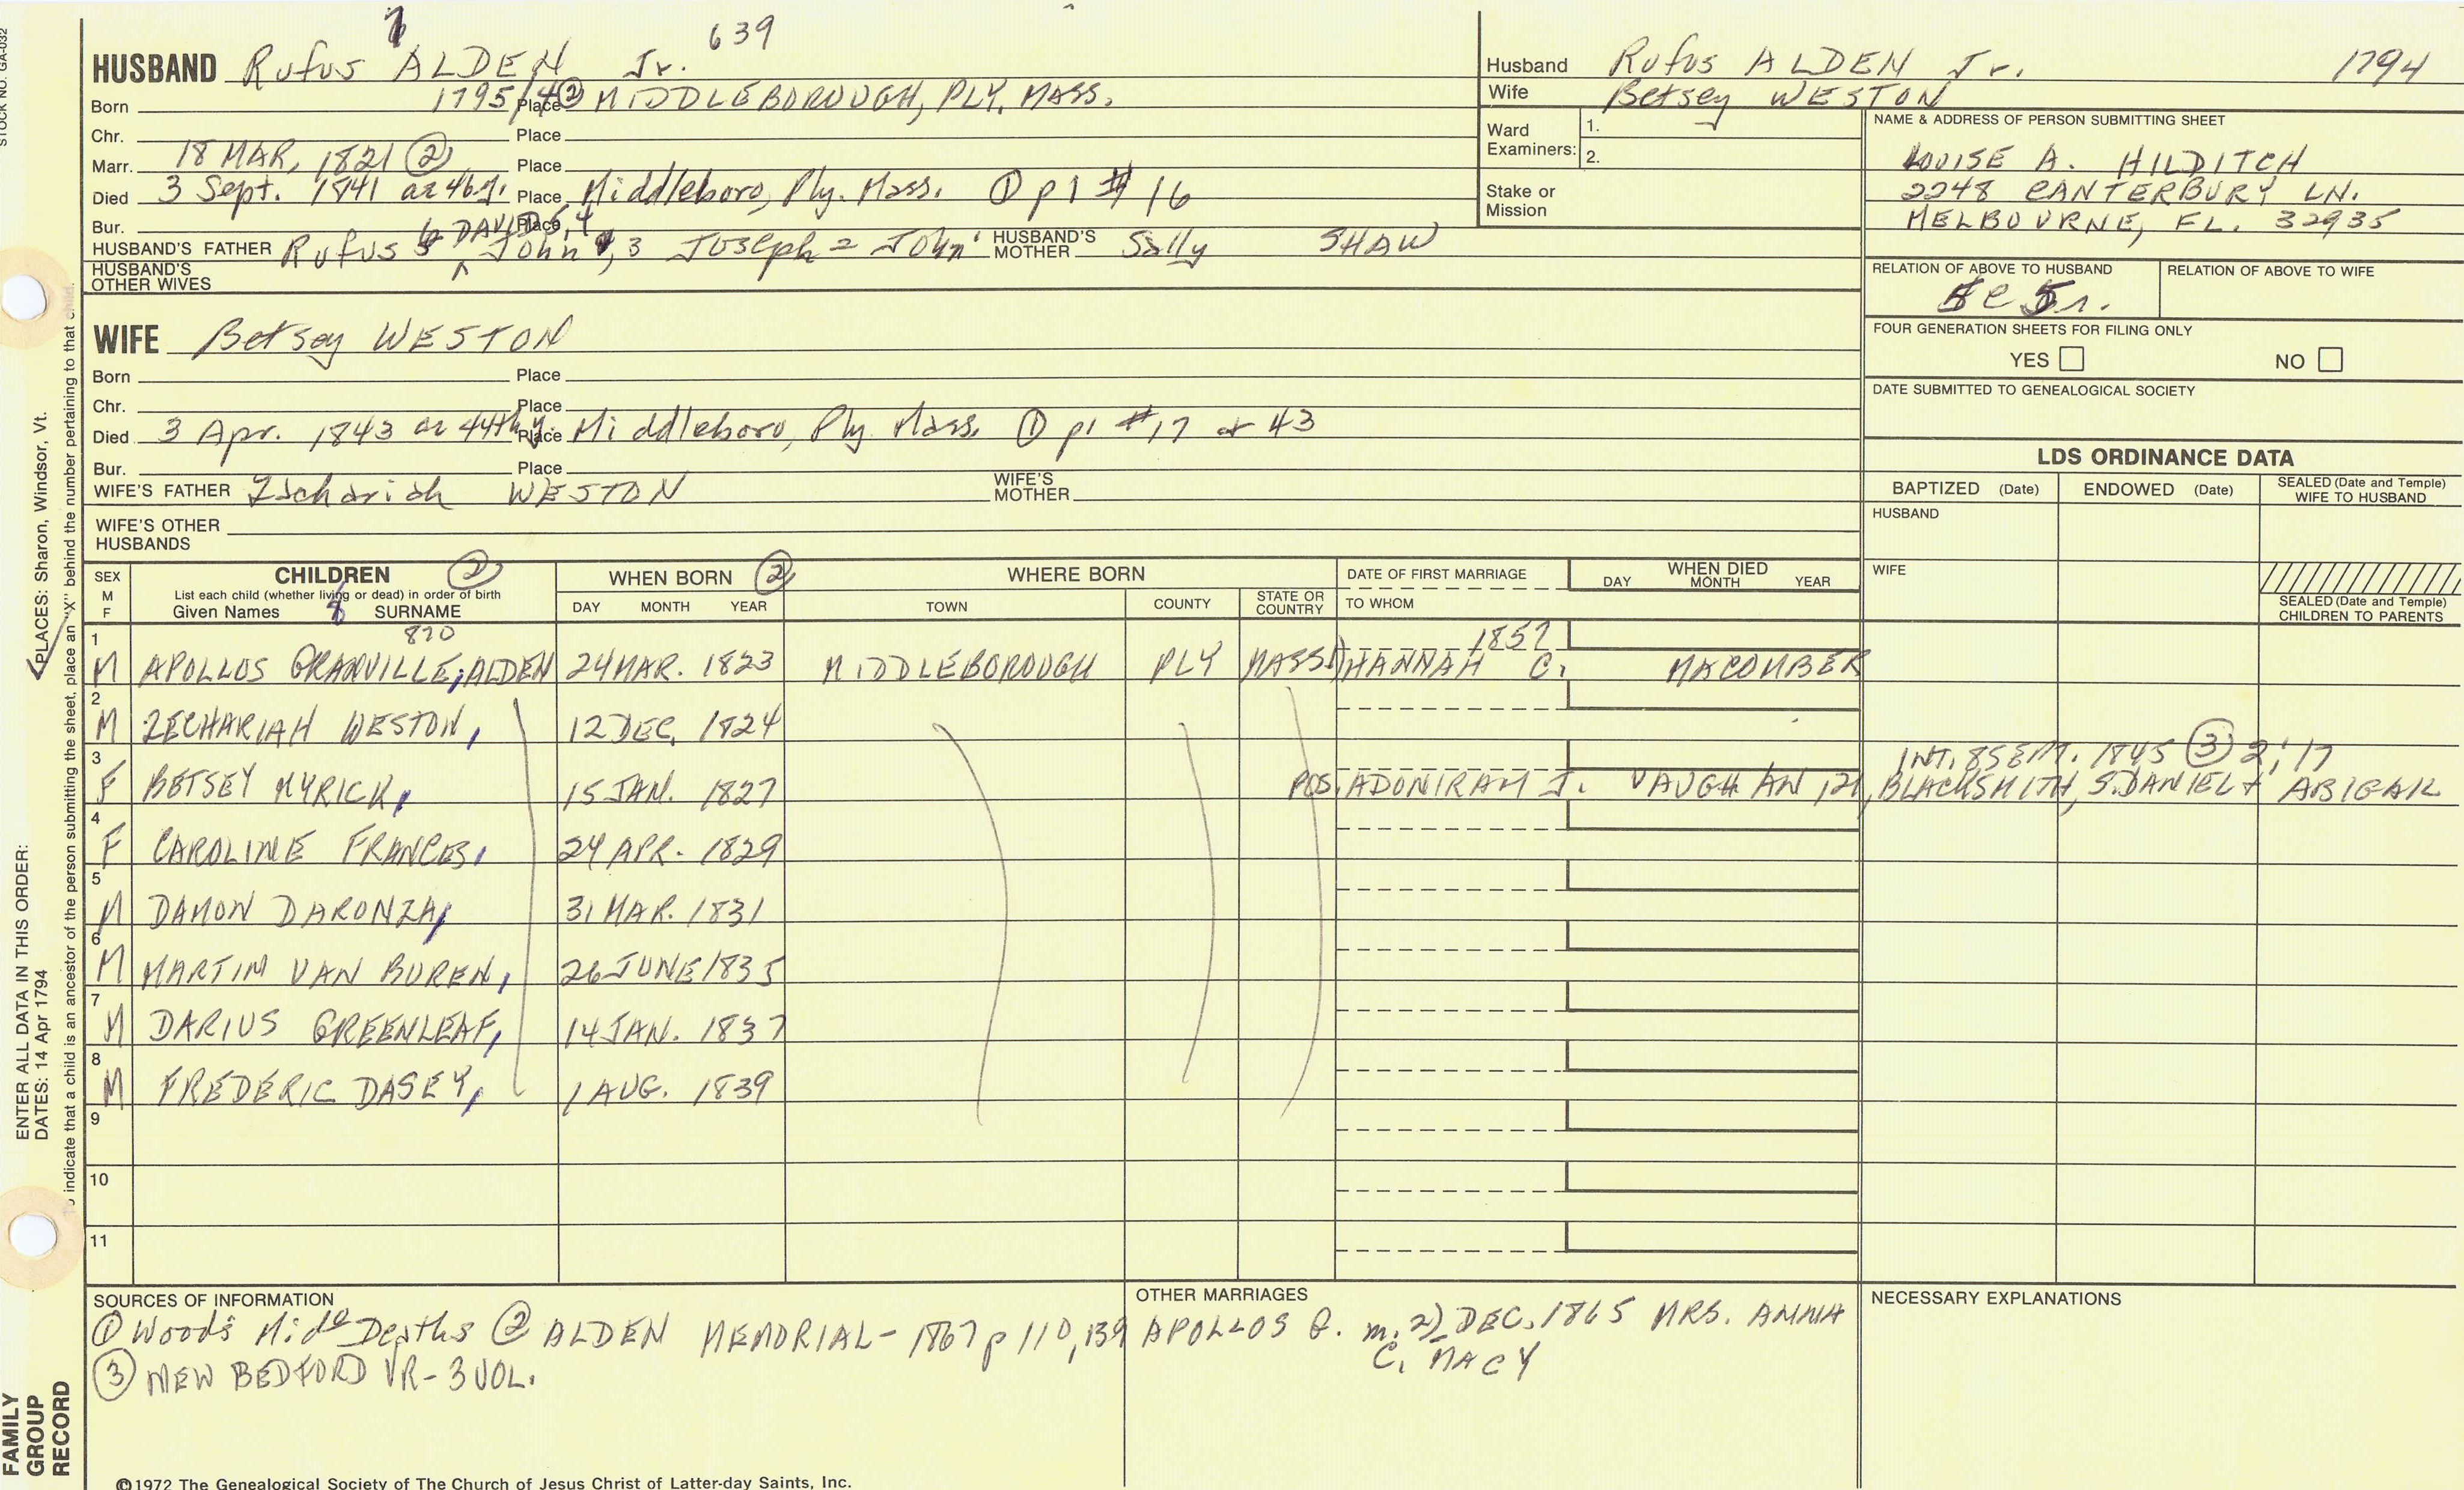 STOCK NO. GA-032
7 639
HUSBAND Rufus ALDEN Jr.
Born 1795/4 ② Place MIDDLEBOROUGH, PLY. MASS.
Chr. Place
Marr. 18 MAR, 1821 ② Place
Died 3 Sept. 1841 ae 46y. Place Middleboro, Ply. Mass. ① p1 # 16
Bur. Place
6 DAVID 5, 4
HUSBAND'S FATHER Rufus John 3 Joseph 2 John 1 HUSBAND'S MOTHER Sally SHAW
HUSBAND'S OTHER WIVES
WIFE Betsey WESTON
Born Place
Chr. Place
Died 3 Apr. 1843 ae 44th y. Place Middleboro, Ply Mass. ① p1 #17 at 43
Bur. Place
WIFE'S FATHER Zachariah WESTON WIFE'S MOTHER
WIFE'S OTHER HUSBANDS
Husband Rufus ALDEN Jr. 1794
Wife Betsey WESTON
Ward Examiners: 1.
2.
Stake or Mission
NAME & ADDRESS OF PERSON SUBMITTING SHEET
LOUISE A. HILDITCH
2248 CANTERBURY LN.
MELBOURNE, FL. 32935
RELATION OF ABOVE TO HUSBAND RELATION OF ABOVE TO WIFE
FOUR GENERATION SHEETS FOR FILING ONLY
YES NO
DATE SUBMITTED TO GENEALOGICAL SOCIETY
LDS ORDINANCE DATA
BAPTIZED (Date) ENDOWED (Date) SEALED (Date and Temple) WIFE TO HUSBAND
HUSBAND
WIFE
SEALED (Date and Temple) CHILDREN TO PARENTS
SEX M F
CHILDREN ②
List each child (whether living or dead) in order of birth
Given Names 8 SURNAME
WHEN BORN ②
DAY MONTH YEAR
WHERE BORN
TOWN COUNTY STATE OR COUNTRY
DATE OF FIRST MARRIAGE
TO WHOM
WHEN DIED
DAY MONTH YEAR
820 1857
1 M APOLLOS GRANVILLE, ALDEN 24 MAR. 1823 MIDDLEBOROUGH PLY MASS HANNAH C. MACOMBER
2 M ZECHARIAH WESTON, 12 DEC. 1824
INT. 8 SEPT. 1845 ③ 2:17
3 F BETSEY MYRICK, 15 JAN. 1827 POS. ADONIRAM J. VAUGHAN, 21, BLACKSMITH, S. DANIEL + ABIGAIL
4 F CAROLINE FRANCES, 24 APR. 1829
5 M DAMON DARONZA, 31 MAR. 1831
6 M MARTIM VAN BUREN, 26 JUNE 1835
7 M DARIUS GREENLEAF, 14 JAN. 1837
8 M FREDERIC DASEY, 1 AUG. 1839
9
10
11
SOURCES OF INFORMATION
① Wood's Mido Deaths ② ALDEN MEMORIAL - 1867 p 110, 139
③ NEW BEDFORD VR - 3 VOL.
OTHER MARRIAGES
APOLLOS G. m. 2) DEC. 1865 MRS. ANNA
C. MACY
NECESSARY EXPLANATIONS
©1972 The Genealogical Society of The Church of Jesus Christ of Latter-day Saints, Inc.
ENTER ALL DATA IN THIS ORDER:
PLACES: Sharon, Windsor, Vt.
DATES: 14 Apr 1794
To indicate that a child is an ancestor of the person submitting the sheet, place an "X" behind the number pertaining to that child.
FAMILY
GROUP
RECORD